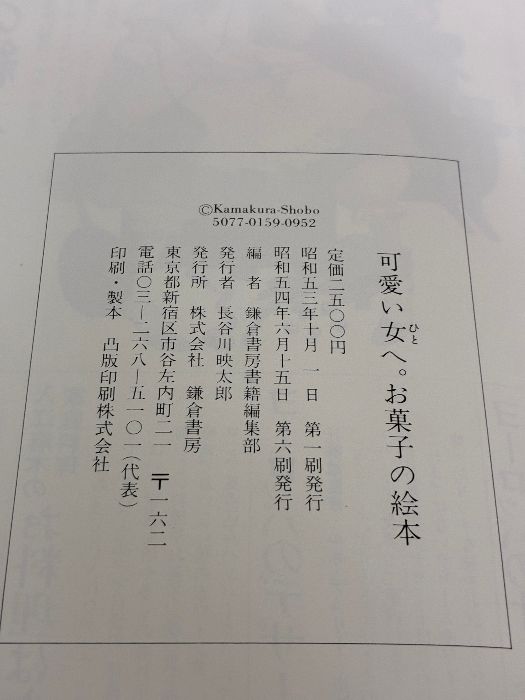 可愛い女へ。お菓子の絵本
ひと
定価二五〇〇円
昭和五三年十月一日 第一刷発行
昭和五四年六月十五日 第六刷発行
編者 鎌倉書房書籍編集部
発行者 長谷川映太郎
発行所 株式会社 鎌倉書房
東京都新宿区市谷左内町二一 〒一六二
電話〇三―二六八―五一〇一(代表)
印刷・製本 凸版印刷株式会社
©Kamakura-Shobo
5077-0159-0952